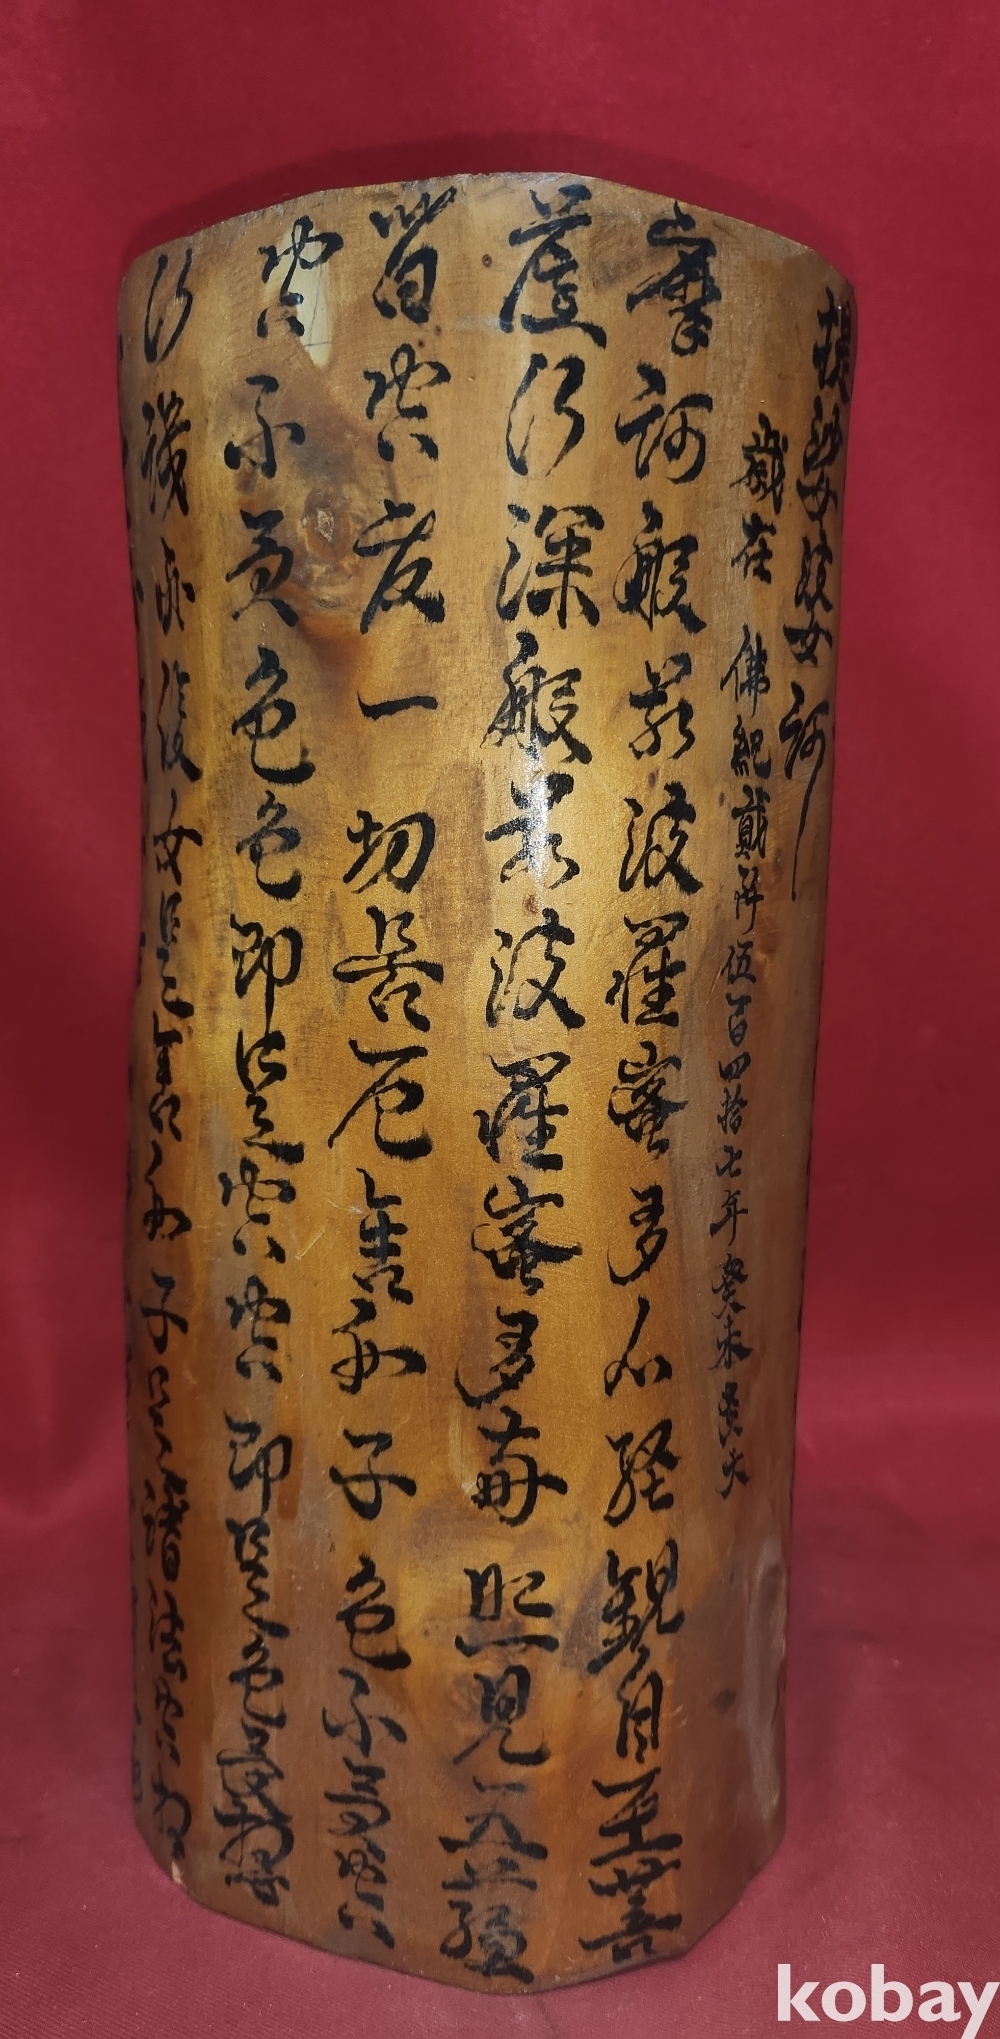 提娑婆訶
歲在 佛紀貳阡伍百四拾七年癸未
摩訶般若波羅蜜多心經觀自在菩
薩行深般若波羅蜜多時照見五蘊
皆空度一切苦厄舍利子色不異空
空不異色色即是空空即是色受想
行識亦復如是舍利子是諸法空相
kobay